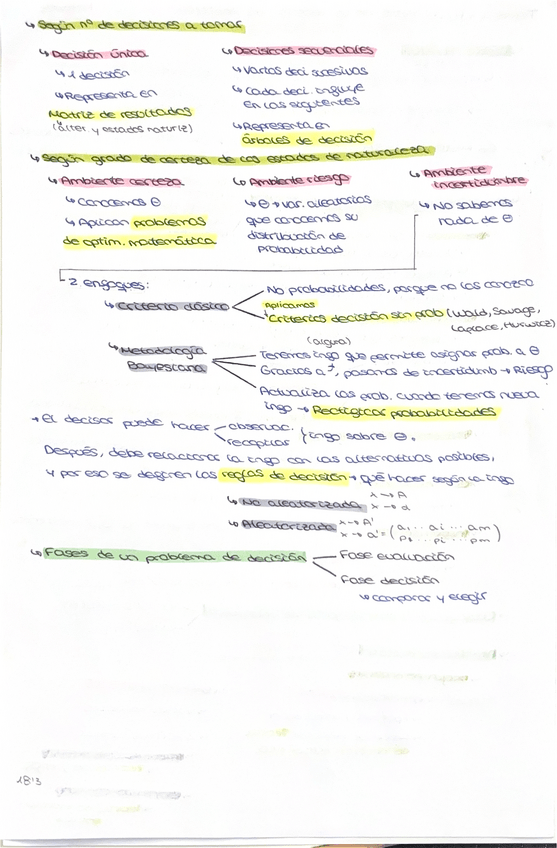 ↳ Según nº de decisiones a tomar
↳ Decisión única
↳ 1 decisión
↳ Representa en
Matriz de resultados
(alter y estados naturlz)
↳ Decisiones secuenciales
↳ Varias deci. sucesivas
↳ Cada deci. influye
en las siguientes
↳ Representa en
árboles de decisión
↳ Según grado de certeza de los estados de naturaleza
↳ Ambiente certeza
↳ Conocemos θ
↳ Aplican problemas
de optim. matemática
↳ Ambiente riesgo
↳ θ → var. aleatorias
que conocemos su
distribución de
probabilidad
↳ Ambiente
incertidumbre
↳ No sabemos
nada de θ
2 enfoques:
↳ Criterio clásico
No probabilidades, porque no las conozco
Aplicamos
Criterios decisión sin prob (Wald, Savage,
Laplace, Hurwicz)
↳ Metodología
Bayesiana
(alguna)
Tenemos info que permite asignar prob. a θ
Gracias a , pasamos de incertidumb → Riesgo
Actualiza las prob. cuando tenemos nueva
info → Rectificar probabilidades
→ El decisor puede hacer observac.
recopilar
info sobre θ.
Después, debe relacionar la info con las alternativas posibles,
y por eso se definen las reglas de decisión → qué hacer según la info
↳ No aleatorizada x → A
x → a
↳ Aleatorizada x → A'
x → a' = (a1 ... ai ... am
p1 ... pi ... pm)
↳ Fases de un problema de decisión
Fase evaluación
Fase decisión
↳ comparar y elegir
18'3